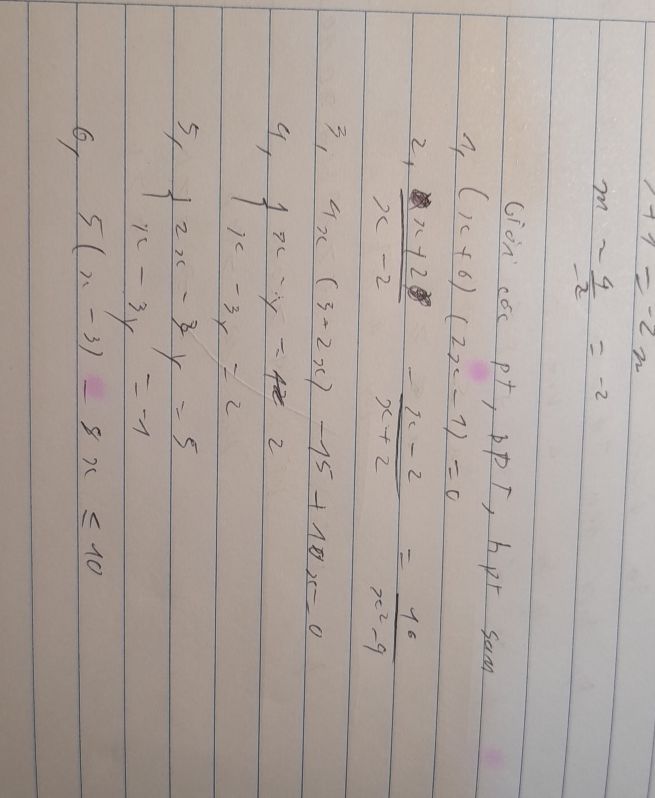 + 1 = -2m
m = 4/-2 = -2
Giải các pt, bpt, hpt sam
1, (x + 6) (2x - 1) = 0
2, x+2/x-2 - x-2/x+2 = 16/x²-4
3, 4x (3+2x) - 15 + 10x = 0
4, { x - y = 2
x - 3y = 2
5, { 2x - 3y = 5
x - 3y = -1
6, 5(x - 3) - 8x ≤ 10